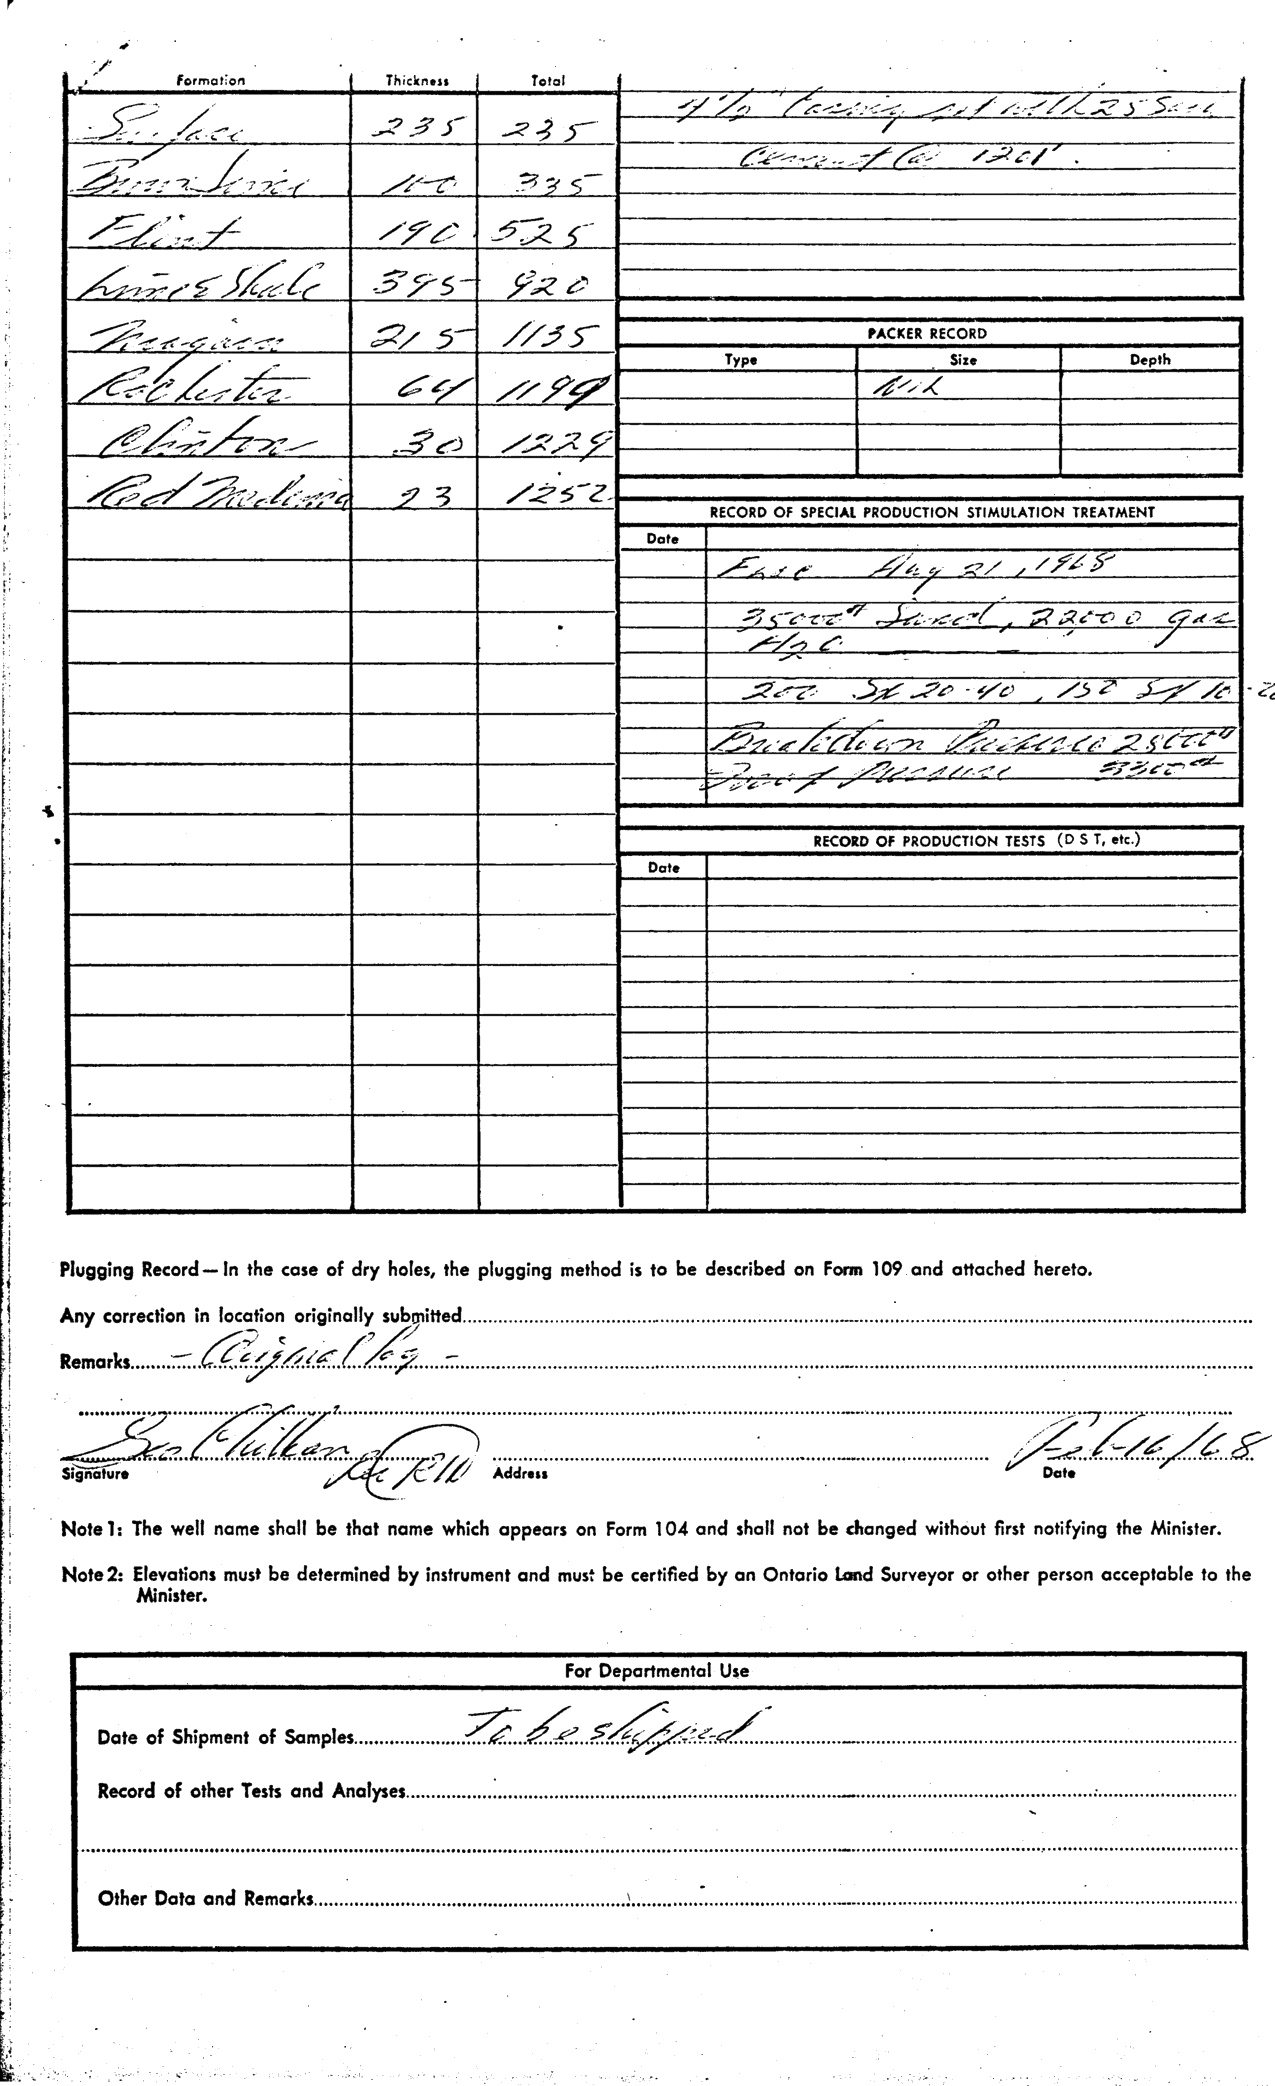 Formation Thickness Total
Surface 235 235
Brown Lime 100 335
Flint 190 525
Lime & Shale 395 920
Niagara 215 1135
Rochester 64 1199
Clinton 30 1229
Red Medina 23 1252
4 1/2" casing set with 25
cement @ 1201'.
PACKER RECORD
Type Size Depth
Nil
RECORD OF SPECIAL PRODUCTION STIMULATION TREATMENT
Date
Frac Aug 21, 1968
35000# Sand, 22000 gal
H2O
200 Sx 20-40, 150 Sx 10-20
Breakdown Pressure
Pressure 3300#
RECORD OF PRODUCTION TESTS (D S T, etc.)
Date
Plugging Record—In the case of dry holes, the plugging method is to be described on Form 109 and attached hereto.
Any correction in location originally submitted
Remarks - Original log -
Geo
Signature Address Date Feb 16/68
Note 1: The well name shall be that name which appears on Form 104 and shall not be changed without first notifying the Minister.
Note 2: Elevations must be determined by instrument and must be certified by an Ontario Land Surveyor or other person acceptable to the
Minister.
For Departmental Use
Date of Shipment of Samples To be shipped
Record of other Tests and Analyses
Other Data and Remarks